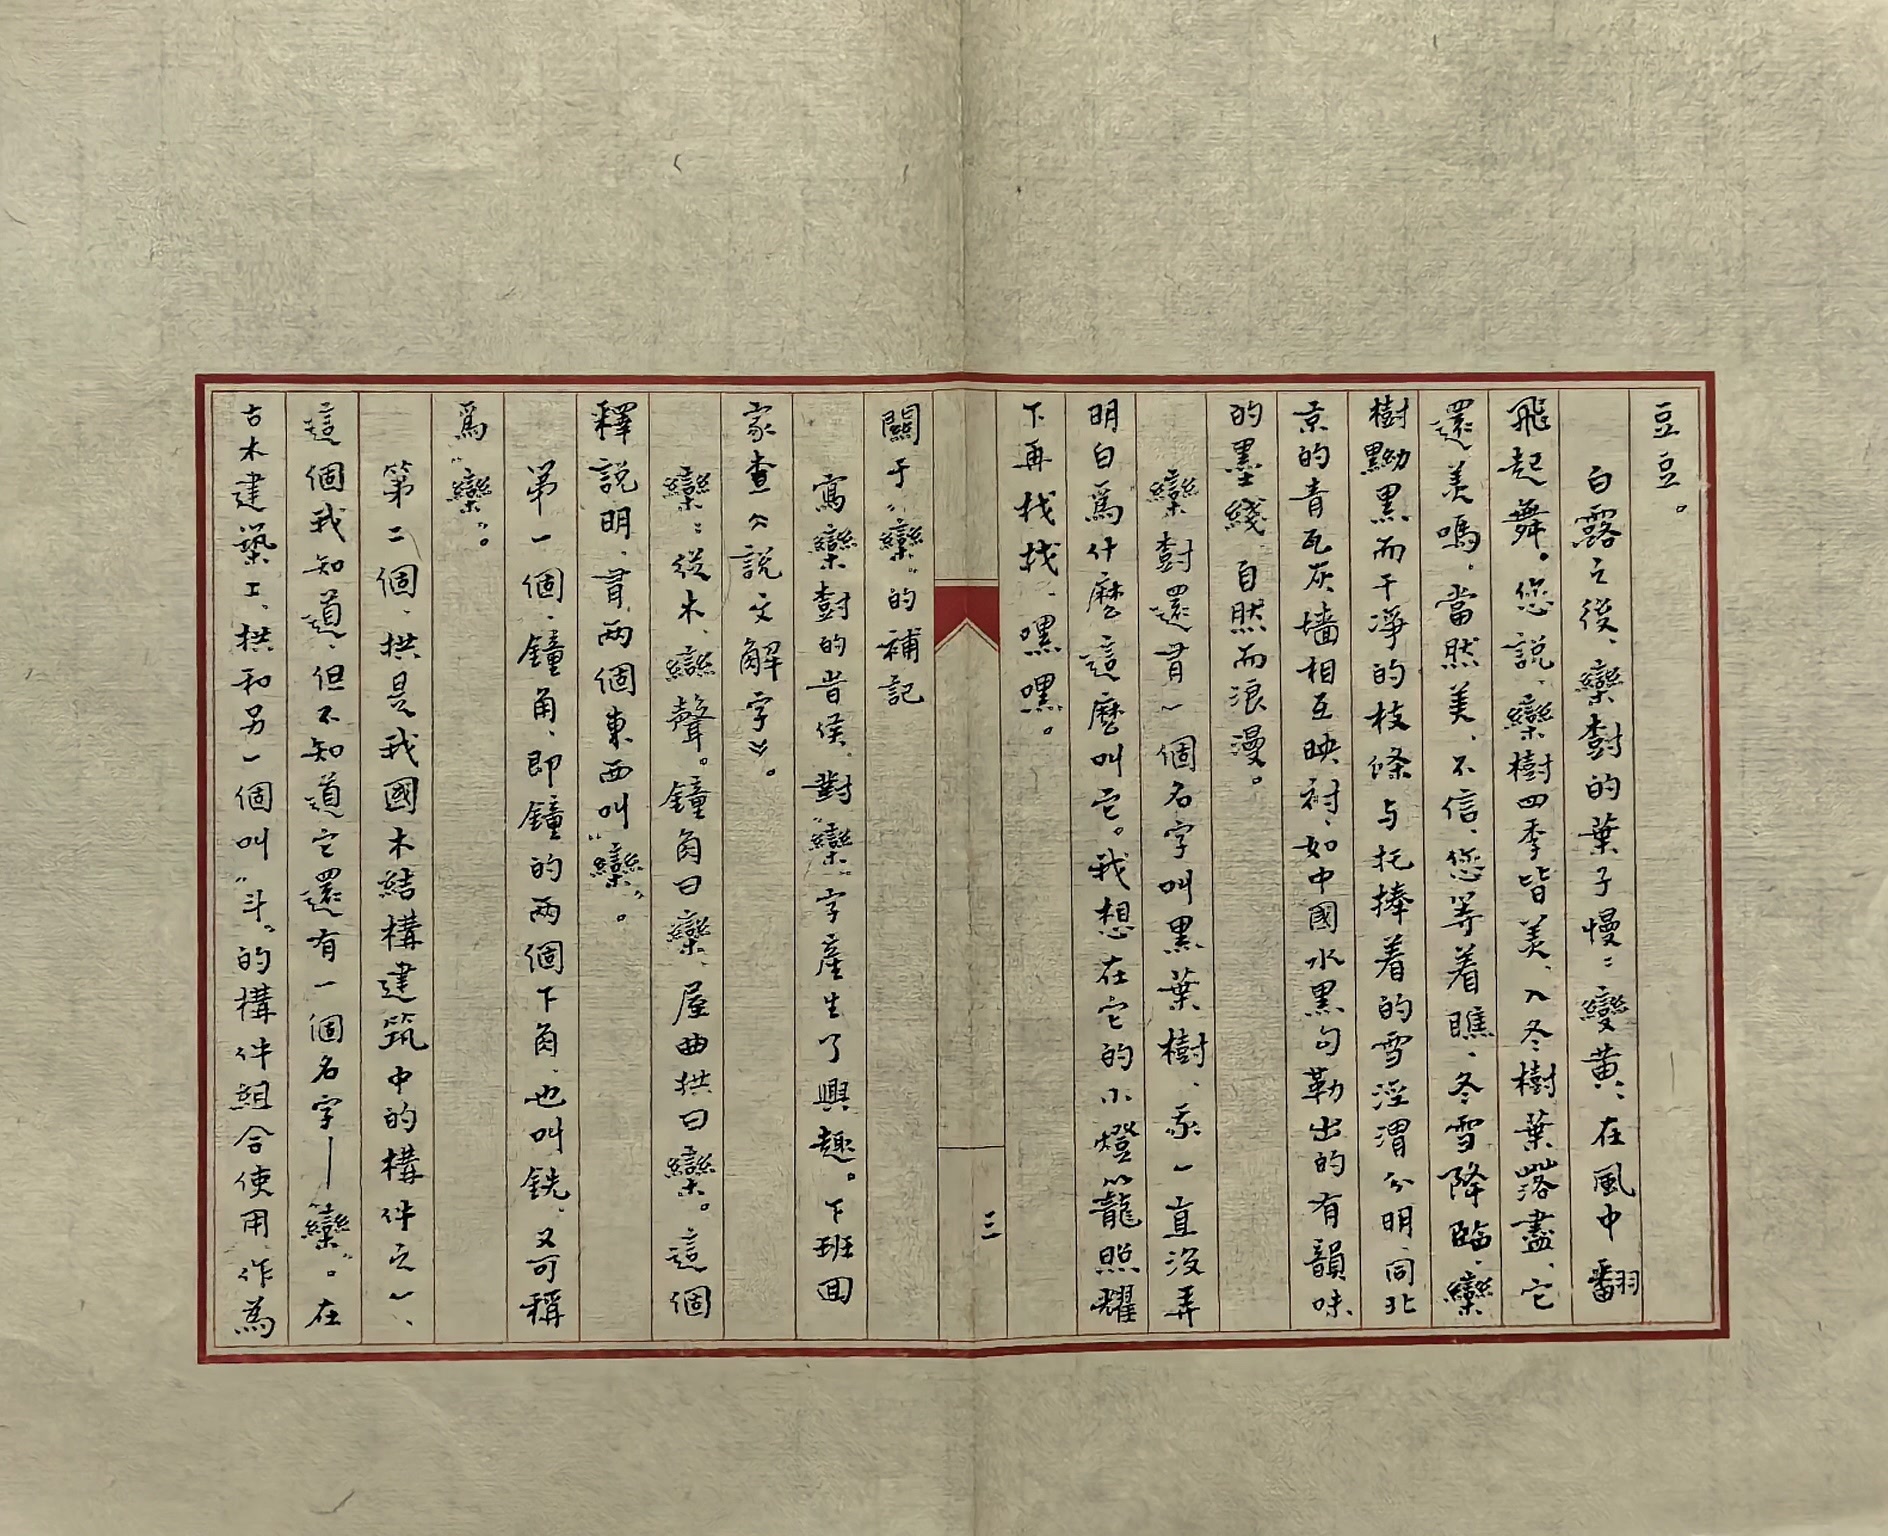 豆豆。
白露之後、欒樹的葉子慢：變黄、在風中翻
飛起舞。您説、欒樹四季皆美、入冬樹葉落盡、它
還美嗎。當然美、不信、您等着瞧、冬雪降臨、欒
樹黝黑而干凈的枝條与托捧着的雪涇渭分明、同北
京的青瓦灰墙相互映衬、如中國水黑勾勒出的有韻味
的墨綫、自然而浪漫。
欒樹還有一個名字叫黑葉樹、我一直沒弄
明白爲什麽這麽叫它。我想在它的小燈籠照耀
下再找找、嘿嘿。
三
關于“欒”的補記
寫欒樹的昔侯、對“欒”字産生了興趣。下班回
家查《説文解字》。
欒：從木、䜌聲。鐘角曰欒、屋曲拱曰欒。這個
释説明、有两個東西叫“欒”。
第一個、鐘角、即鐘的两個下角、也叫銑、又可稱
爲“欒”。
第二個、拱是我國木結構建筑中的構件之一、
這個我知道、但不知道它還有一個名字——“欒”。在
古木建築工、拱和另一個叫“斗”的構件組合使用、作為